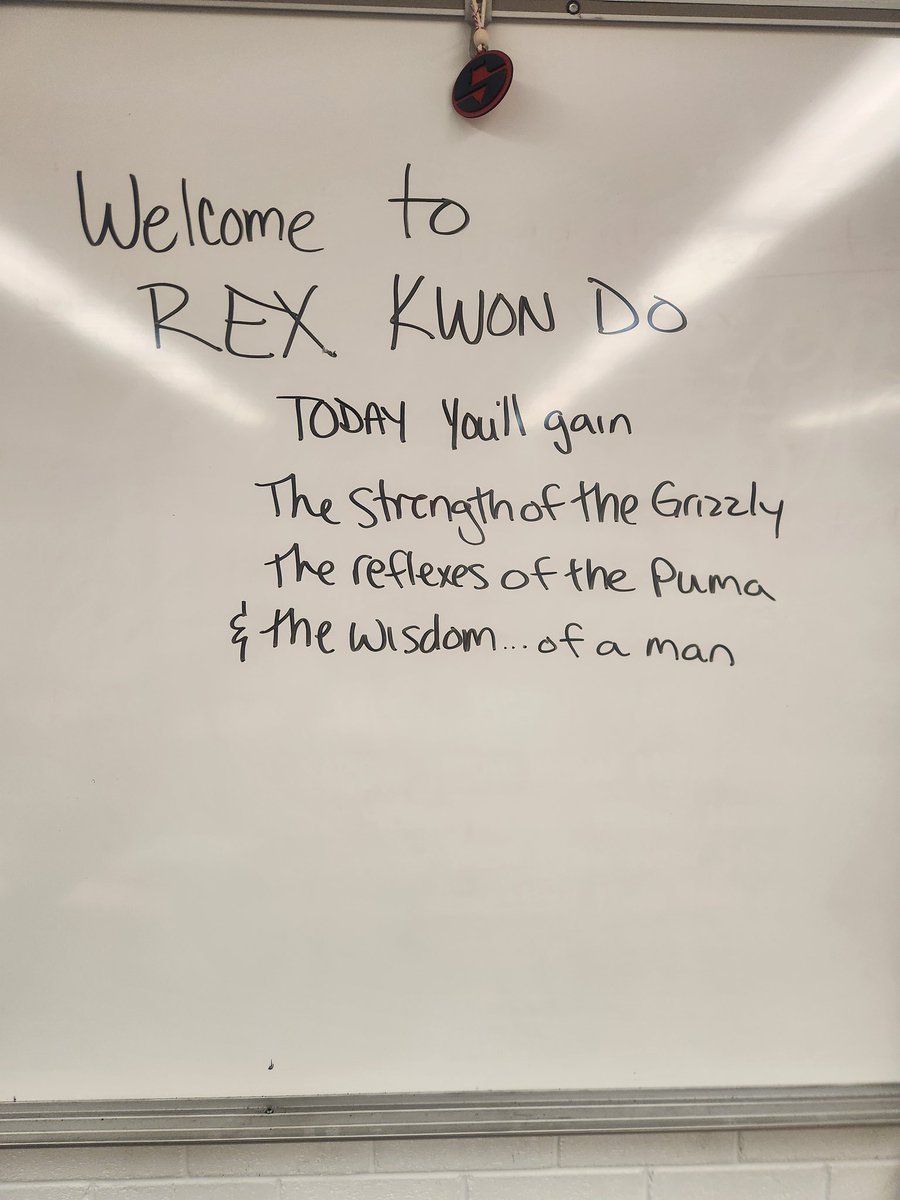 Welcome to
REX KWON DO
TODAY You'll gain
The Strength of the Grizzly
the reflexes of the Puma
& the wisdom... of a man